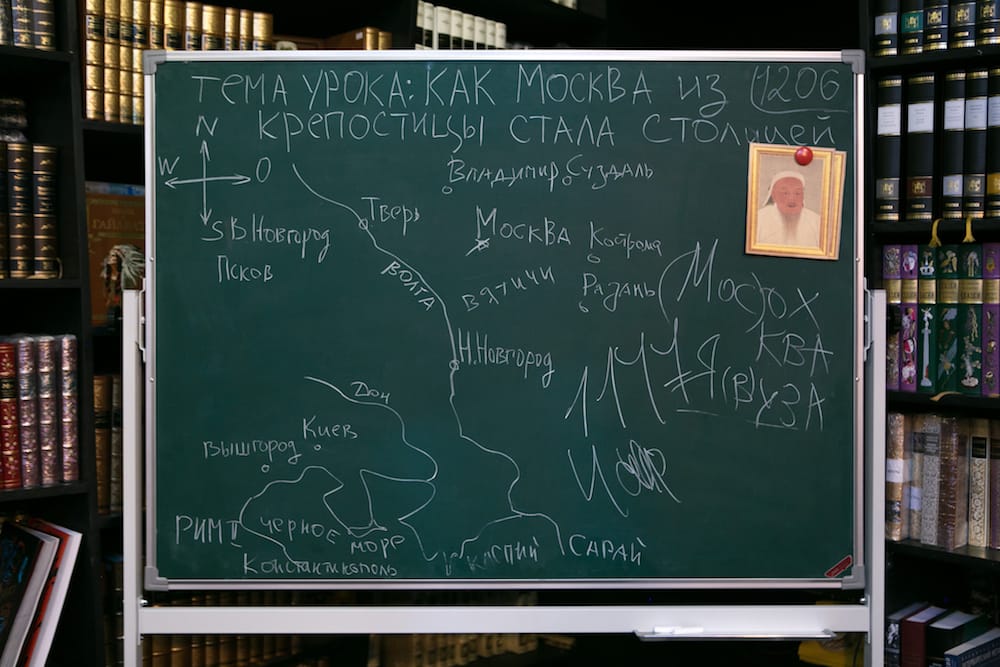 ТЕМА УРОКА: КАК МОСКВА ИЗ 1206
КРЕПОСТИЦЫ СТАЛА СТОЛИЦЕЙ
N
W O
S
ВЛАДИМИР СУЗДАЛЬ
ТВЕРЬ
В.НОВГОРОД
ПСКОВ
МОСКВА
КОСТРОМА
ВОЛГА
ВЯТИЧИ
РЯЗАНЬ
МОСОХ
КВА
Я(В)УЗА
1147
Н.НОВГОРОД
ДОН
КИЕВ
ВЫШГОРОД
РИМ II
ЧЕРНОЕ
МОРЕ
КОНСТАНТИНОПОЛЬ
КАСПИЙ
САРАЙ